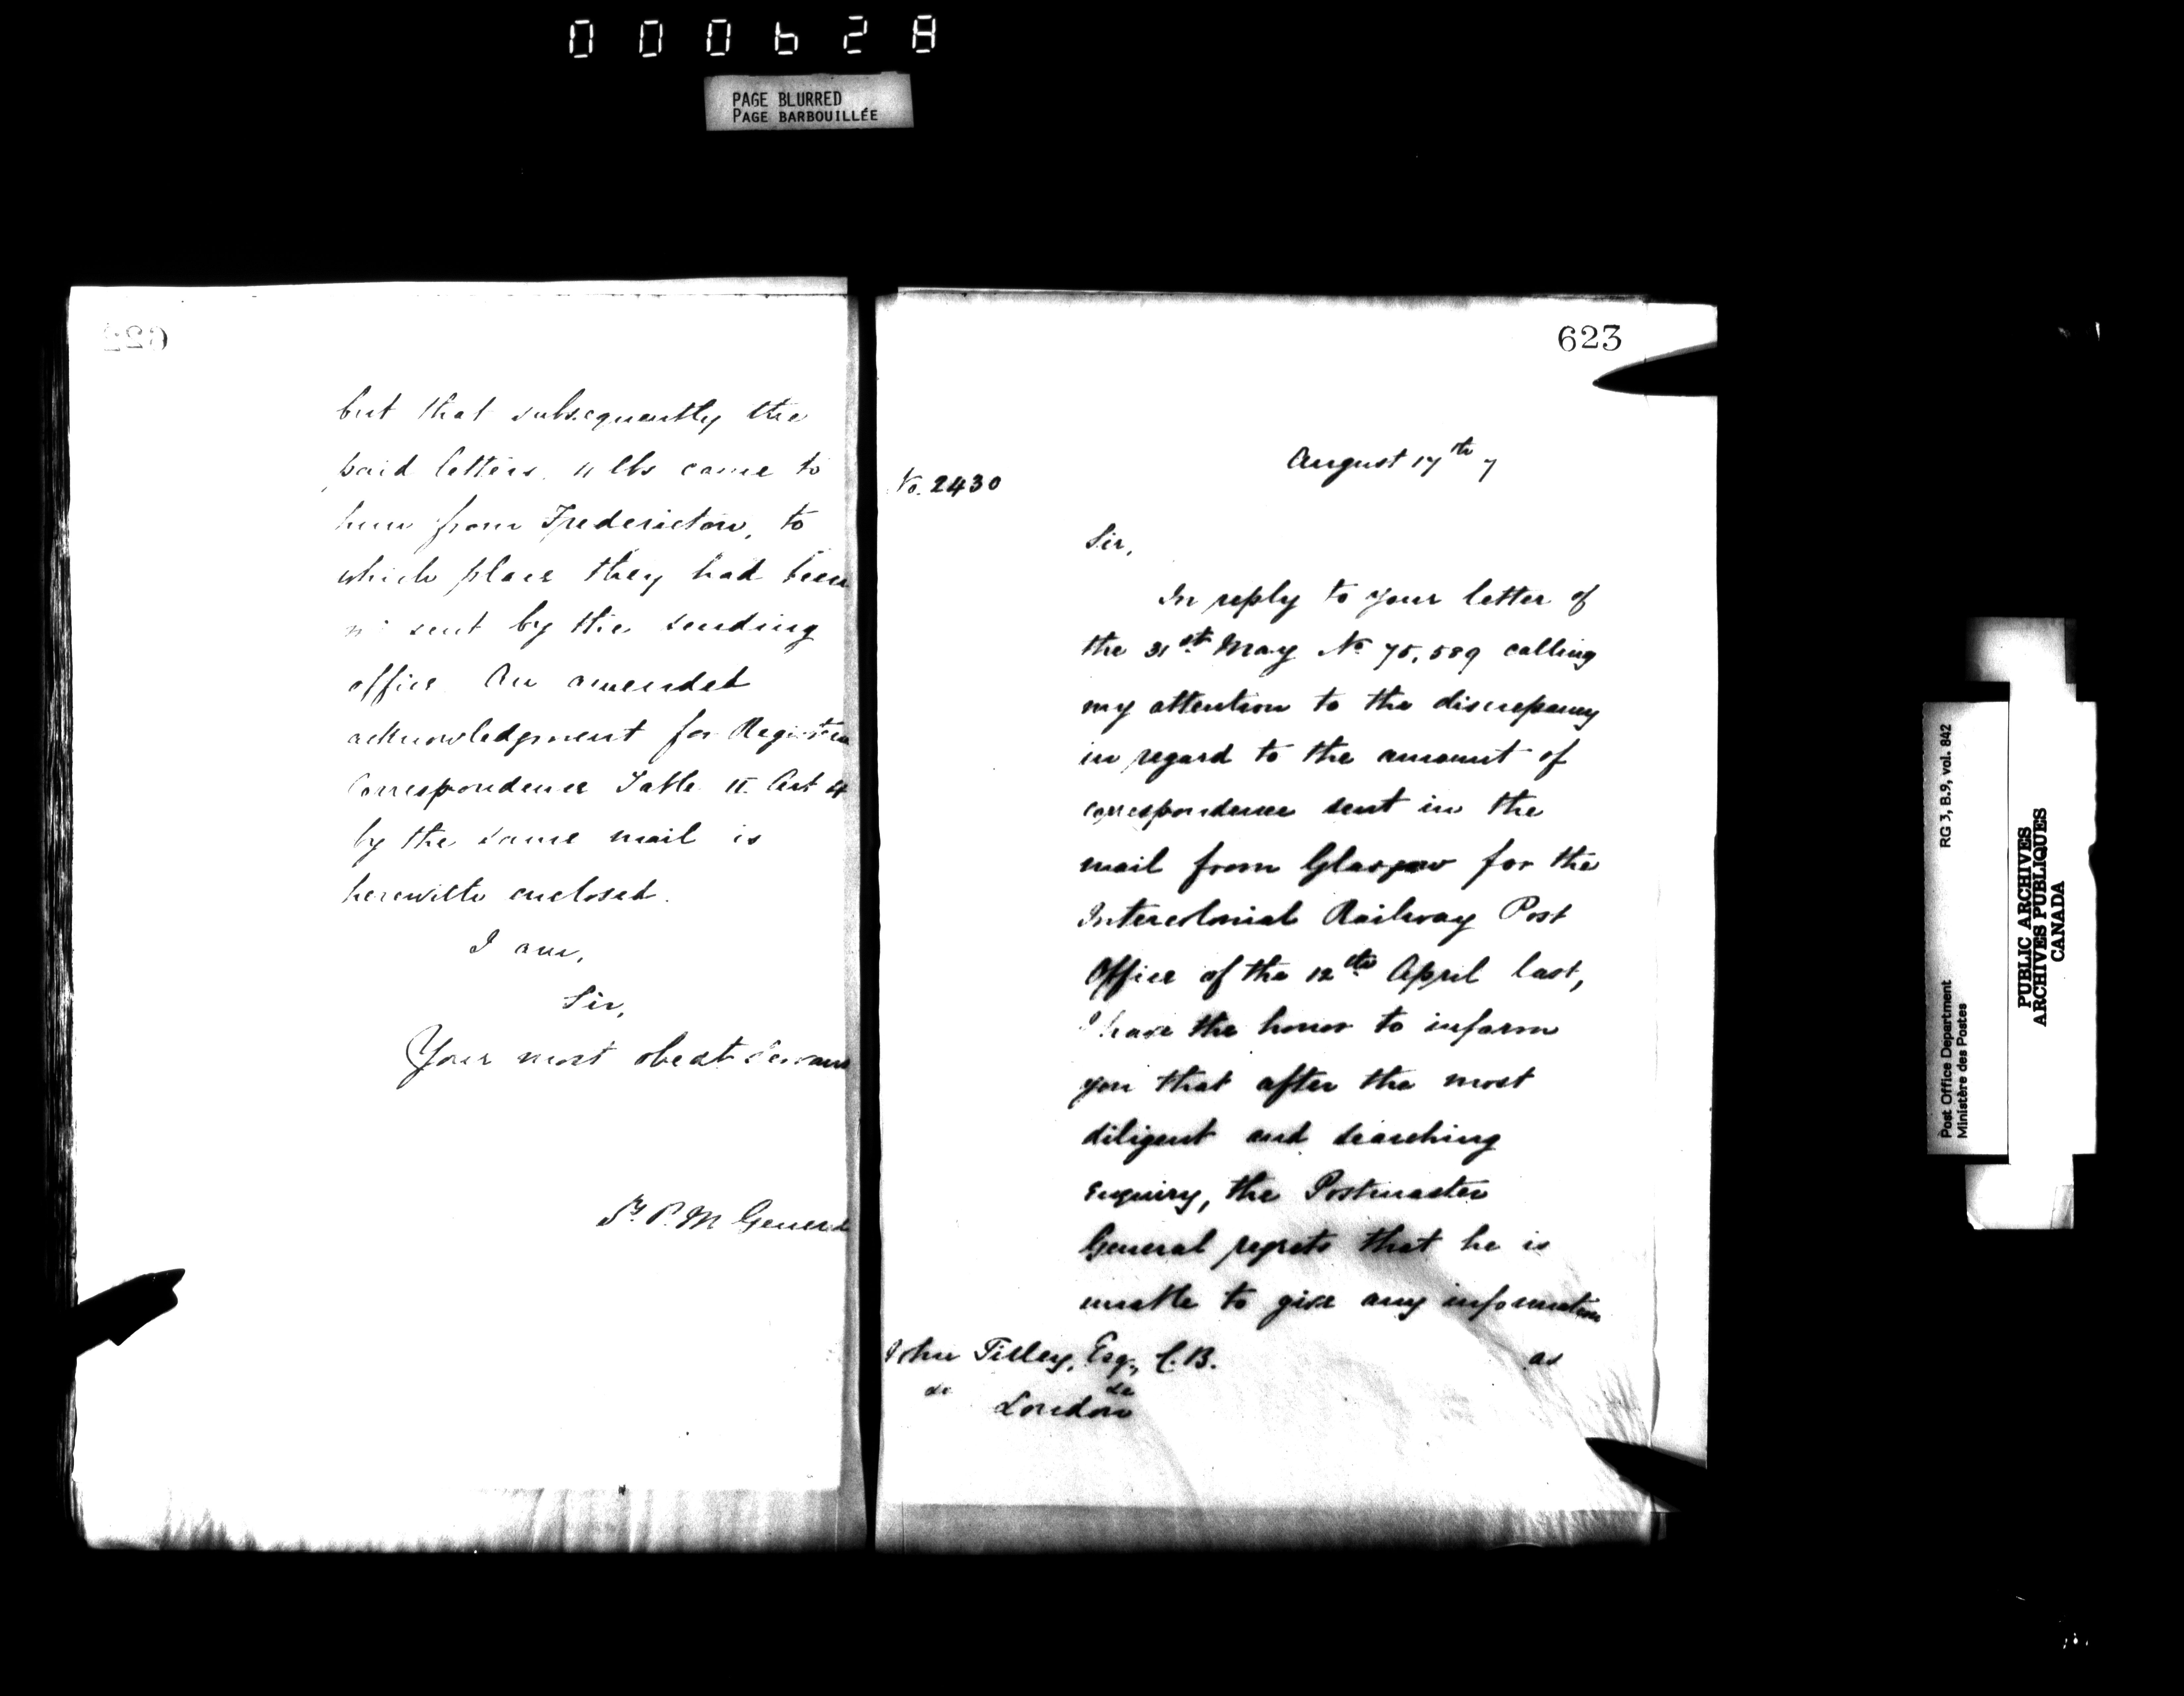 000628
PAGE BLURRED
PAGE BARBOUILLÉE
622
but that subsequently the
paid letters 11 lbs came to
him from Fredericton, to
which place they had been
sent by the sending
office. An amended
acknowledgment for Register
Correspondence Table II. Art 4
by the same mail is
herewith enclosed.
I am,
Sir,
Your most obedt Servant
P. M General
623
August 17th 7
No. 2430
Sir,
In reply to your letter of
the 31st May No 75,589 calling
my attention to the discrepancy
in regard to the amount of
correspondence sent in the
mail from Glasgow for the
Intercolonial Railway Post
Office of the 12th April last,
I have the honor to inform
you that after the most
diligent and searching
enquiry, the Postmaster
General regrets that he is
unable to give any information
John Tilley, Esq., C.B.
as
&c &c
London
Post Office Department
Ministère des Postes
RG 3, B.9, vol. 842
PUBLIC ARCHIVES
ARCHIVES PUBLIQUES
CANADA